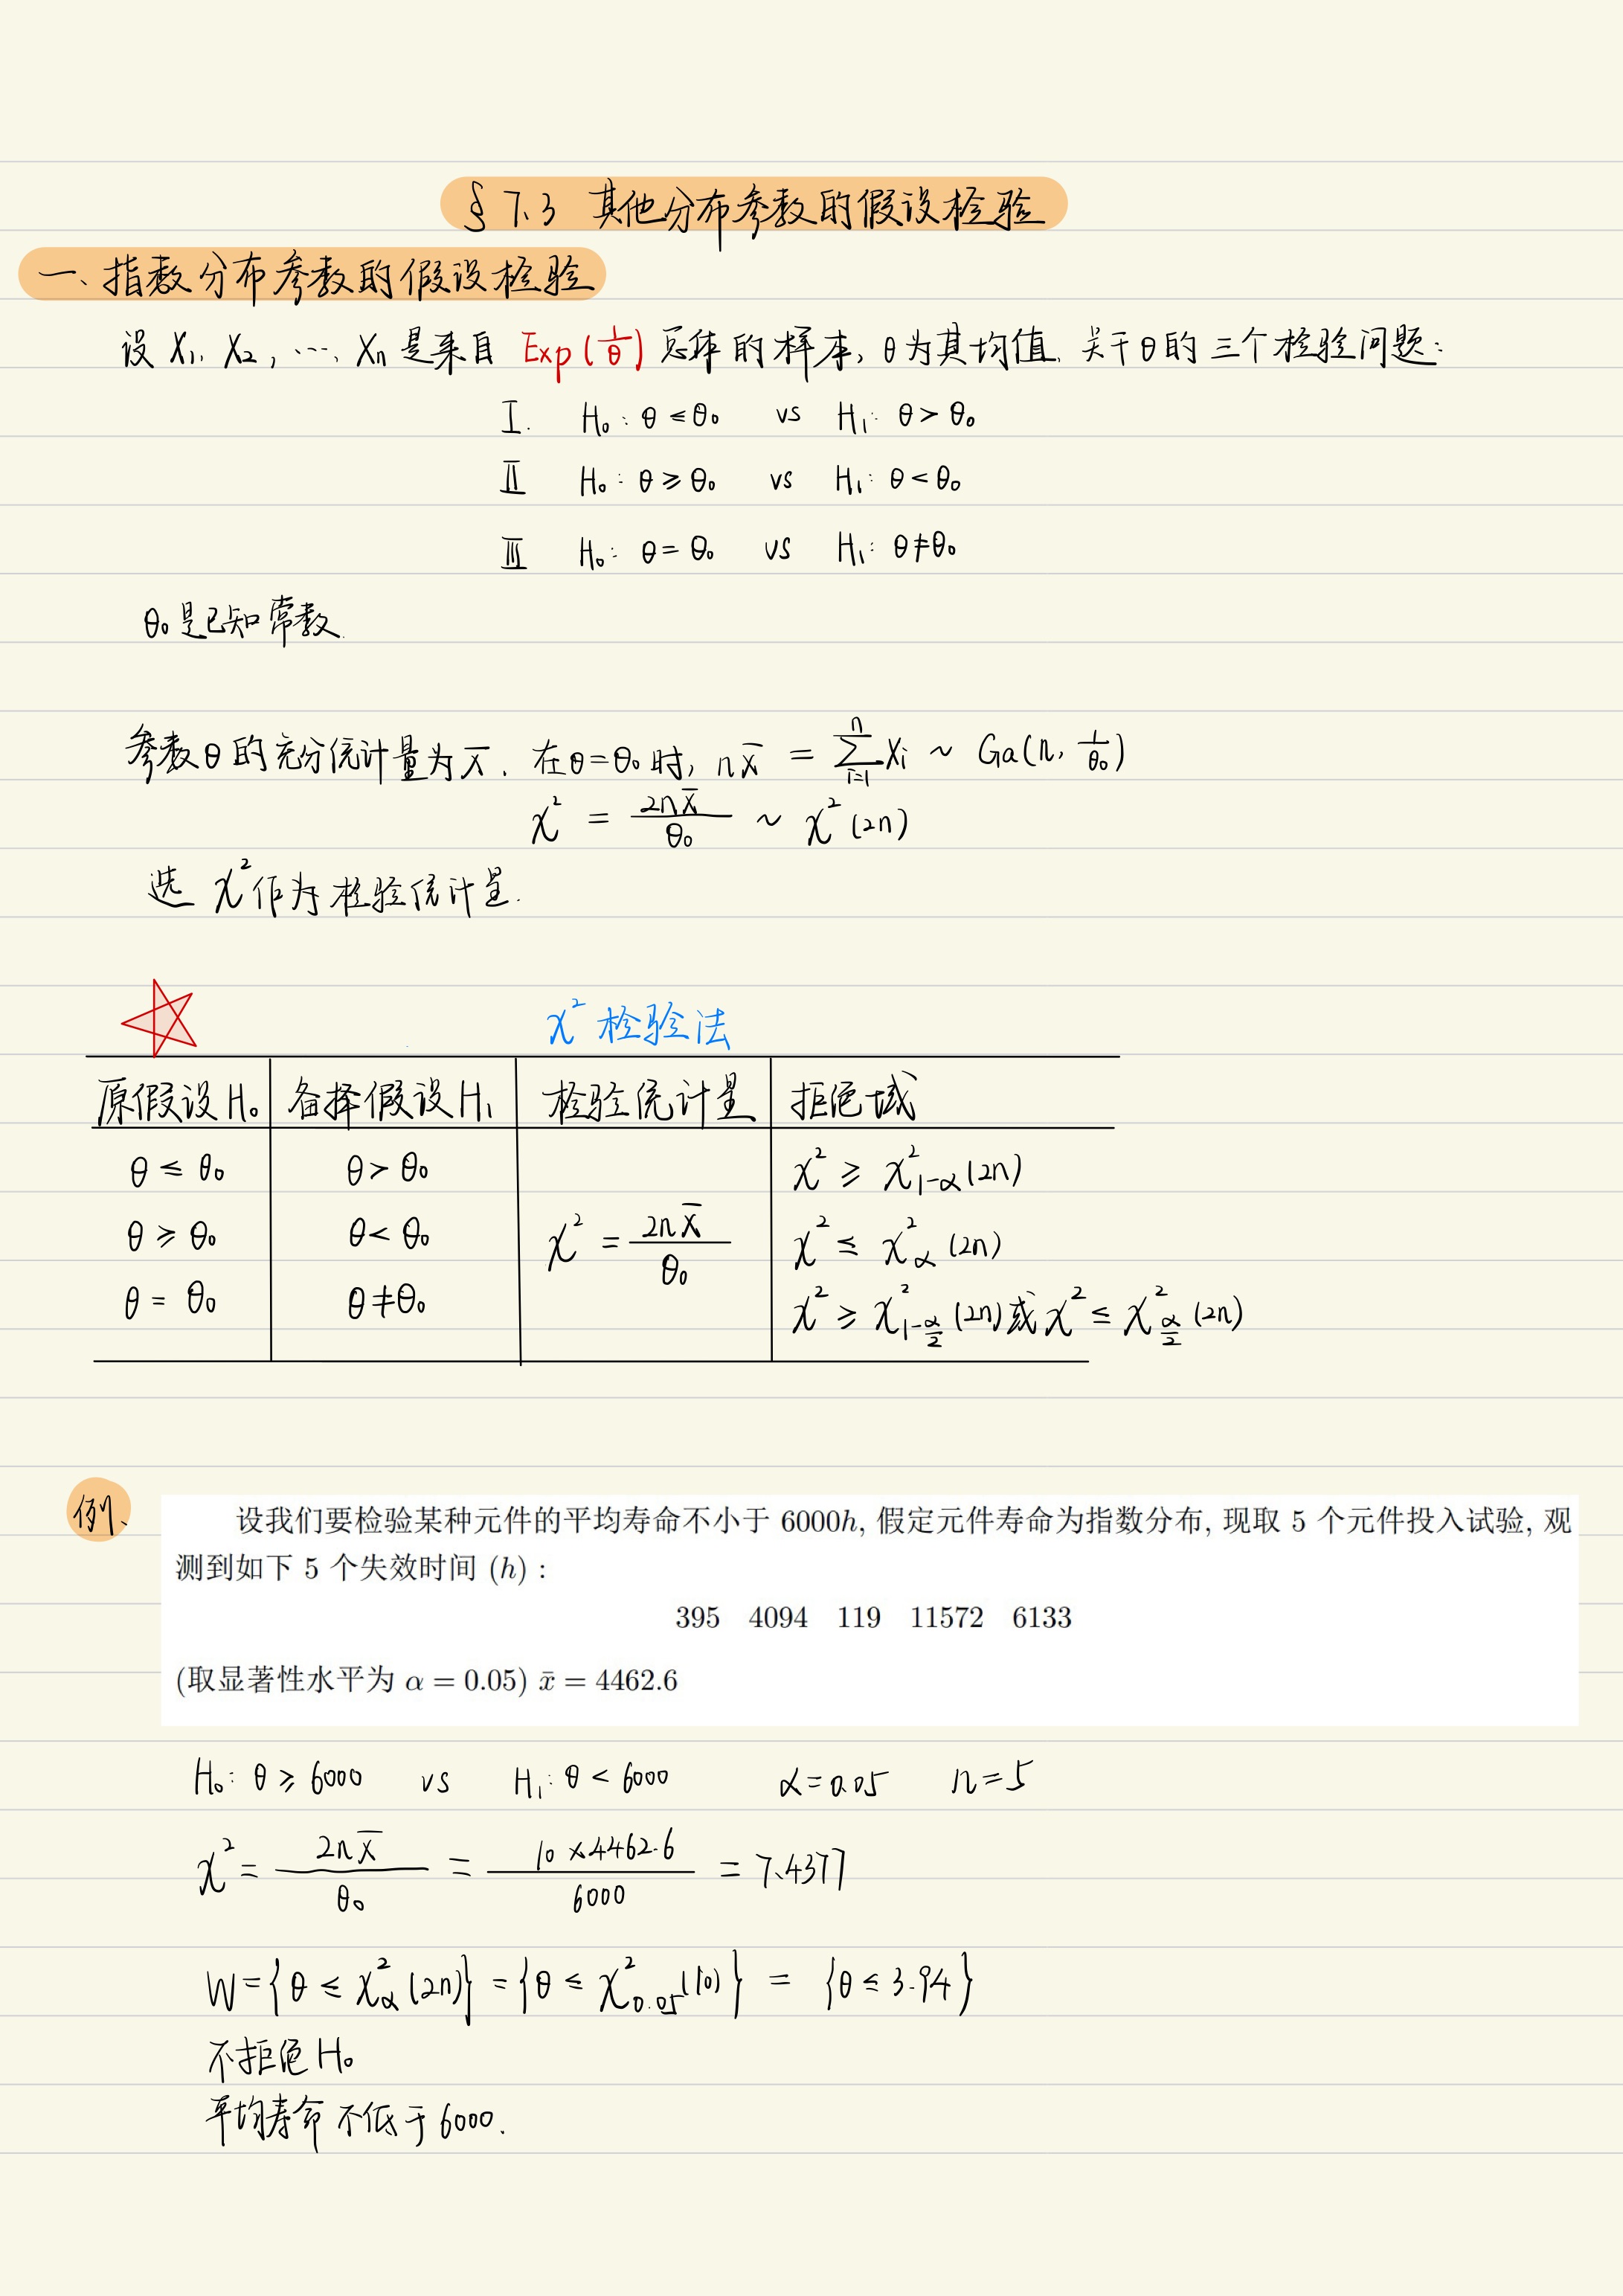 §7.3 其他分布参数的假设检验
一、指数分布参数的假设检验
设 X₁, X₂, ···, Xₙ 是来自 Exp(1/θ) 总体的样本, θ为其均值. 关于θ的三个检验问题:
I. H₀: θ ≤ θ₀ vs H₁: θ > θ₀
Ⅱ H₀: θ ≥ θ₀ vs H₁: θ < θ₀
Ⅲ H₀: θ = θ₀ vs H₁: θ ≠ θ₀
θ₀是已知常数.
参数θ的充分统计量为x̄. 在θ=θ₀时, nx̄ = ∑ᵢ₌₁ⁿ Xᵢ ~ Ga(n, 1/θ₀)
χ² = 2nx̄/θ₀ ~ χ²(2n)
选 χ²作为检验统计量.
χ² 检验法
原假设H₀ 备择假设H₁ 检验统计量 拒绝域
θ ≤ θ₀ θ > θ₀ χ² ≥ χ²₁₋α(2n)
θ ≥ θ₀ θ < θ₀ χ² = 2nx̄/θ₀ χ² ≤ χ²α(2n)
θ = θ₀ θ ≠ θ₀ χ² ≥ χ²₁₋α/₂(2n)或χ² ≤ χ²α/₂(2n)
例、
设我们要检验某种元件的平均寿命不小于 6000h, 假定元件寿命为指数分布, 现取 5 个元件投入试验, 观
测到如下 5 个失效时间 (h) :
395 4094 119 11572 6133
(取显著性水平为 α = 0.05) x̄ = 4462.6
H₀: θ ≥ 6000 vs H₁: θ < 6000 α=0.05 n=5
χ² = 2nx̄/θ₀ = 10×4462.6/6000 = 7.4377
W={θ ≤ χ²α(2n)} = {θ ≤ χ²₀.₀₅(10)} = {θ ≤ 3.94}
不拒绝H₀
平均寿命不低于6000.